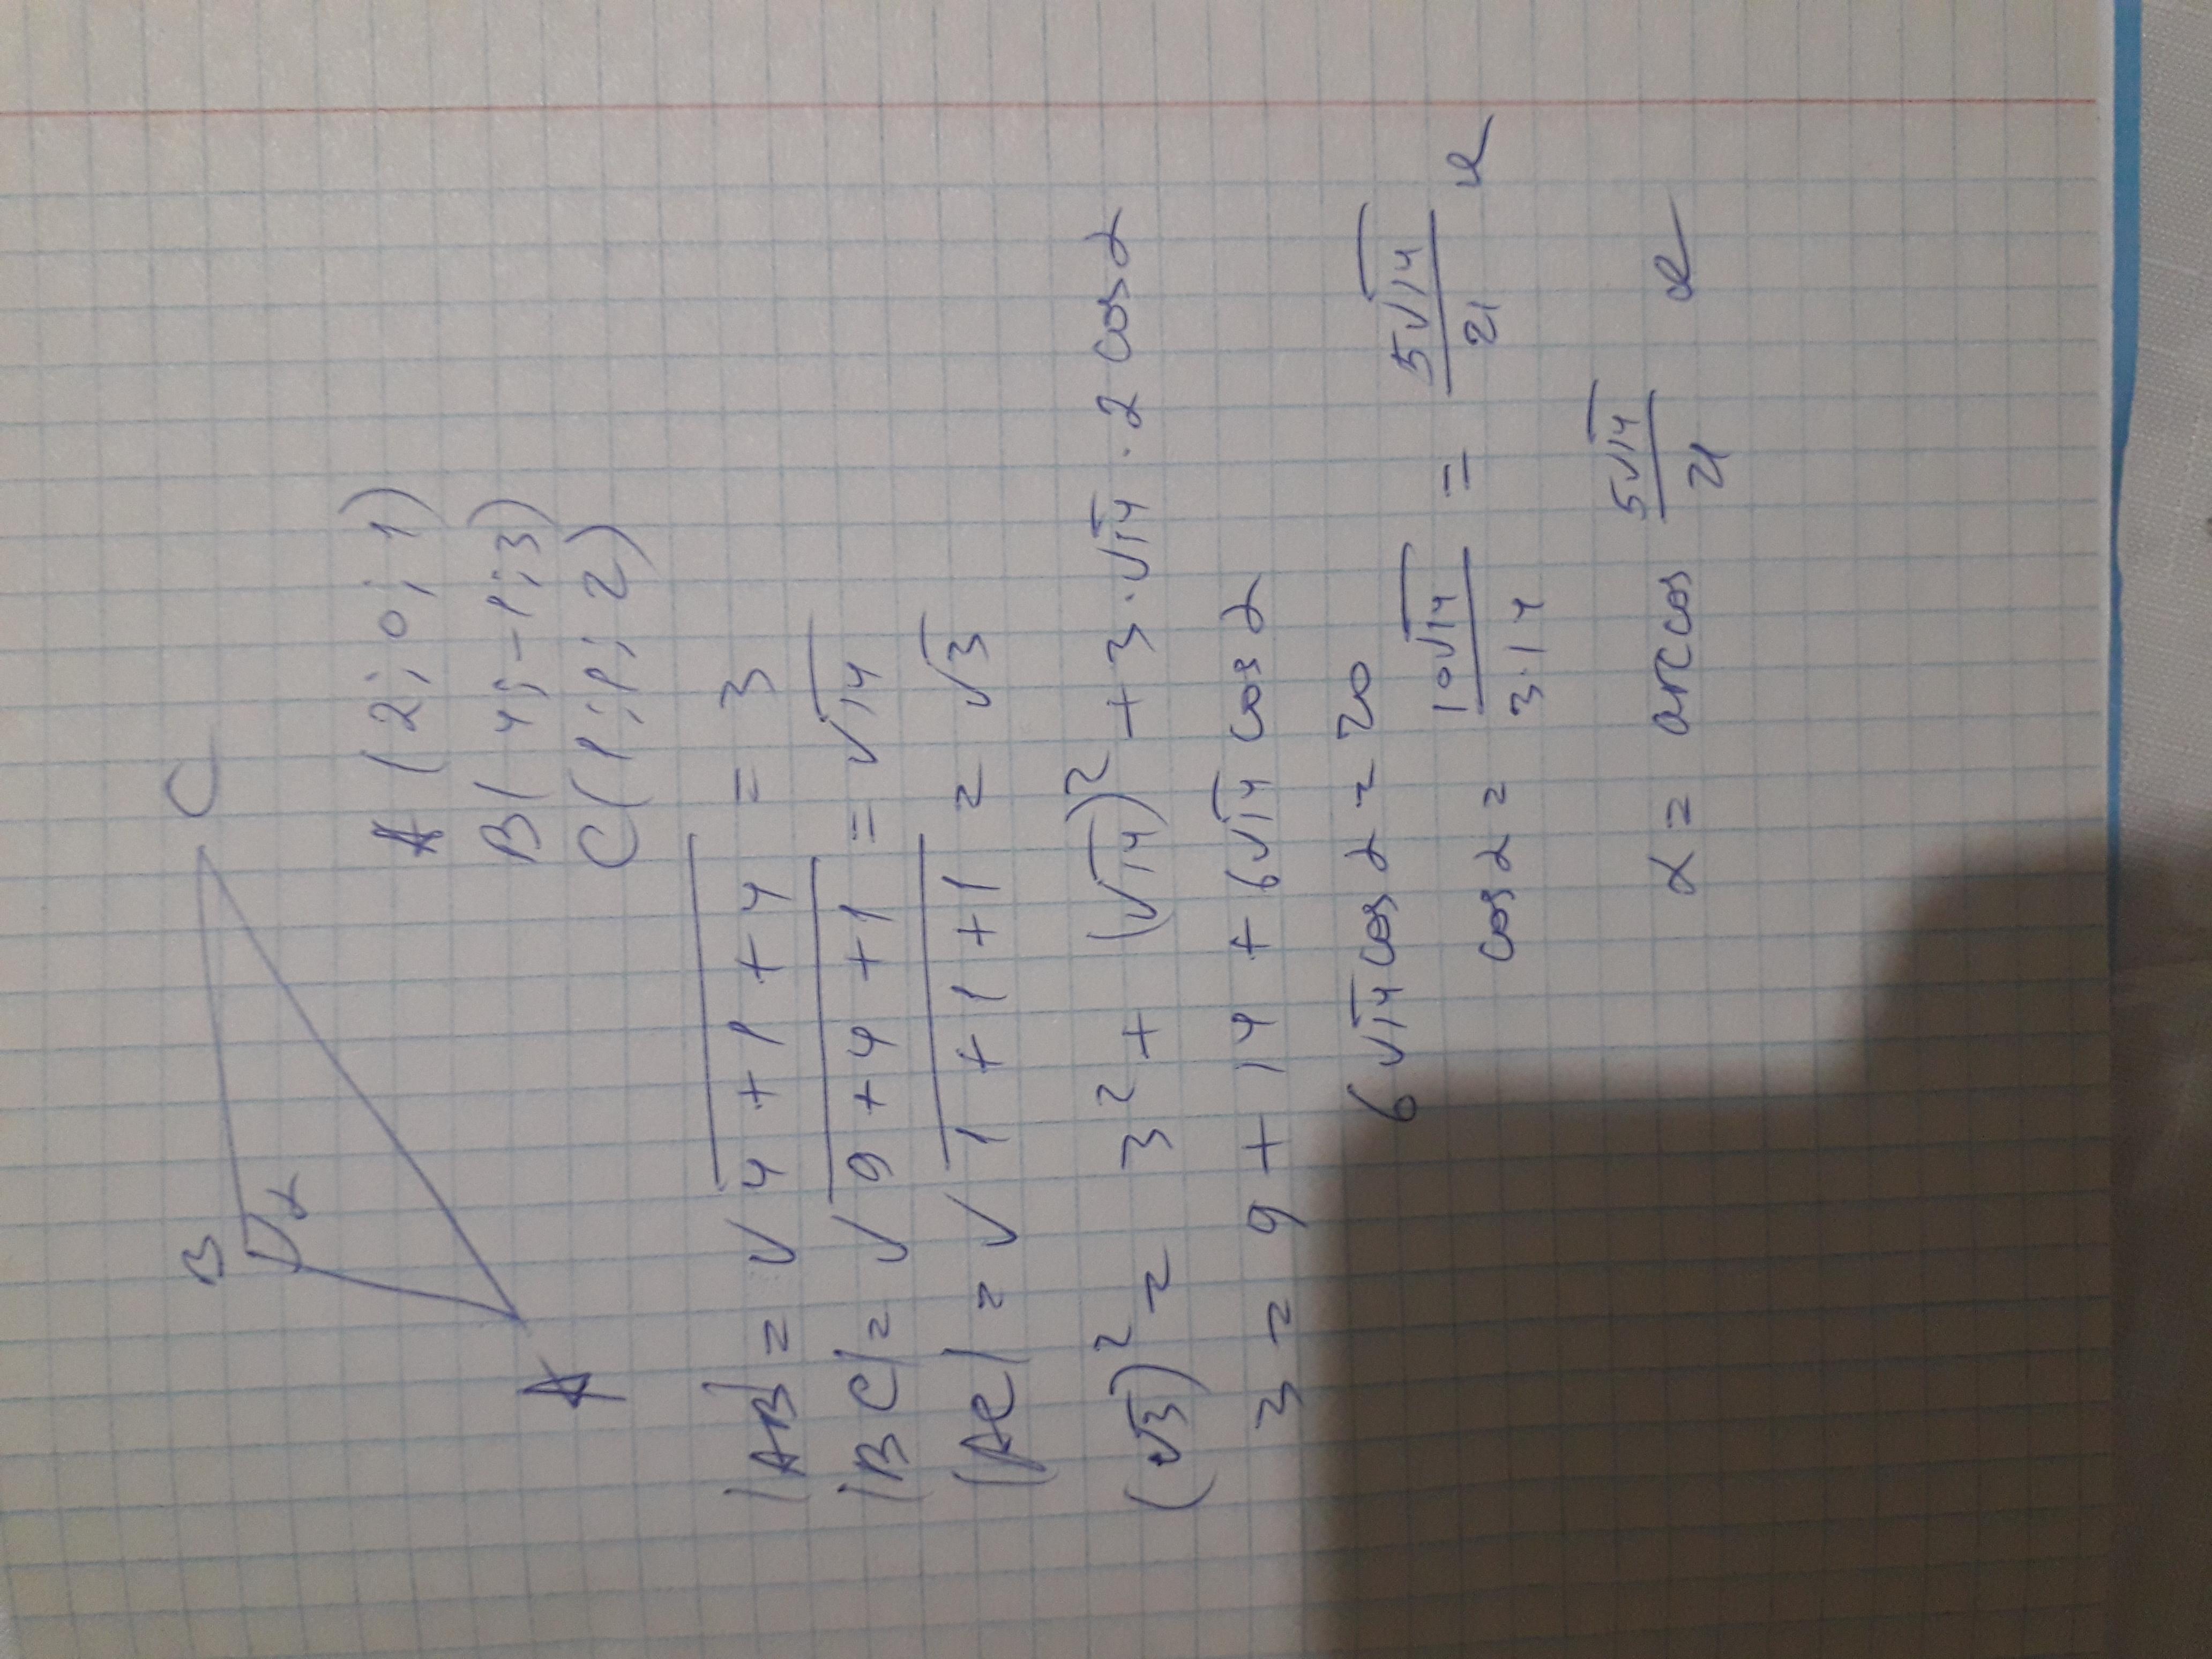 B C
α
A
A (2; 0; 1)
B (4; -1; 3)
C (1; 1; 2)
|AB| = √4 + 1 + 4 = 3
|BC| = √9 + 4 + 1 = √14
|AC| = √1 + 1 + 1 = √3
(√3)² = 3² + (√14)² + 3 · √14 · 2 cos α
3 = 9 + 14 + 6√14 cos α
6√14 cos α = 20
cos α = 10√14 / 3·14 = 5√14 / 21
α = arccos 5√14 / 21